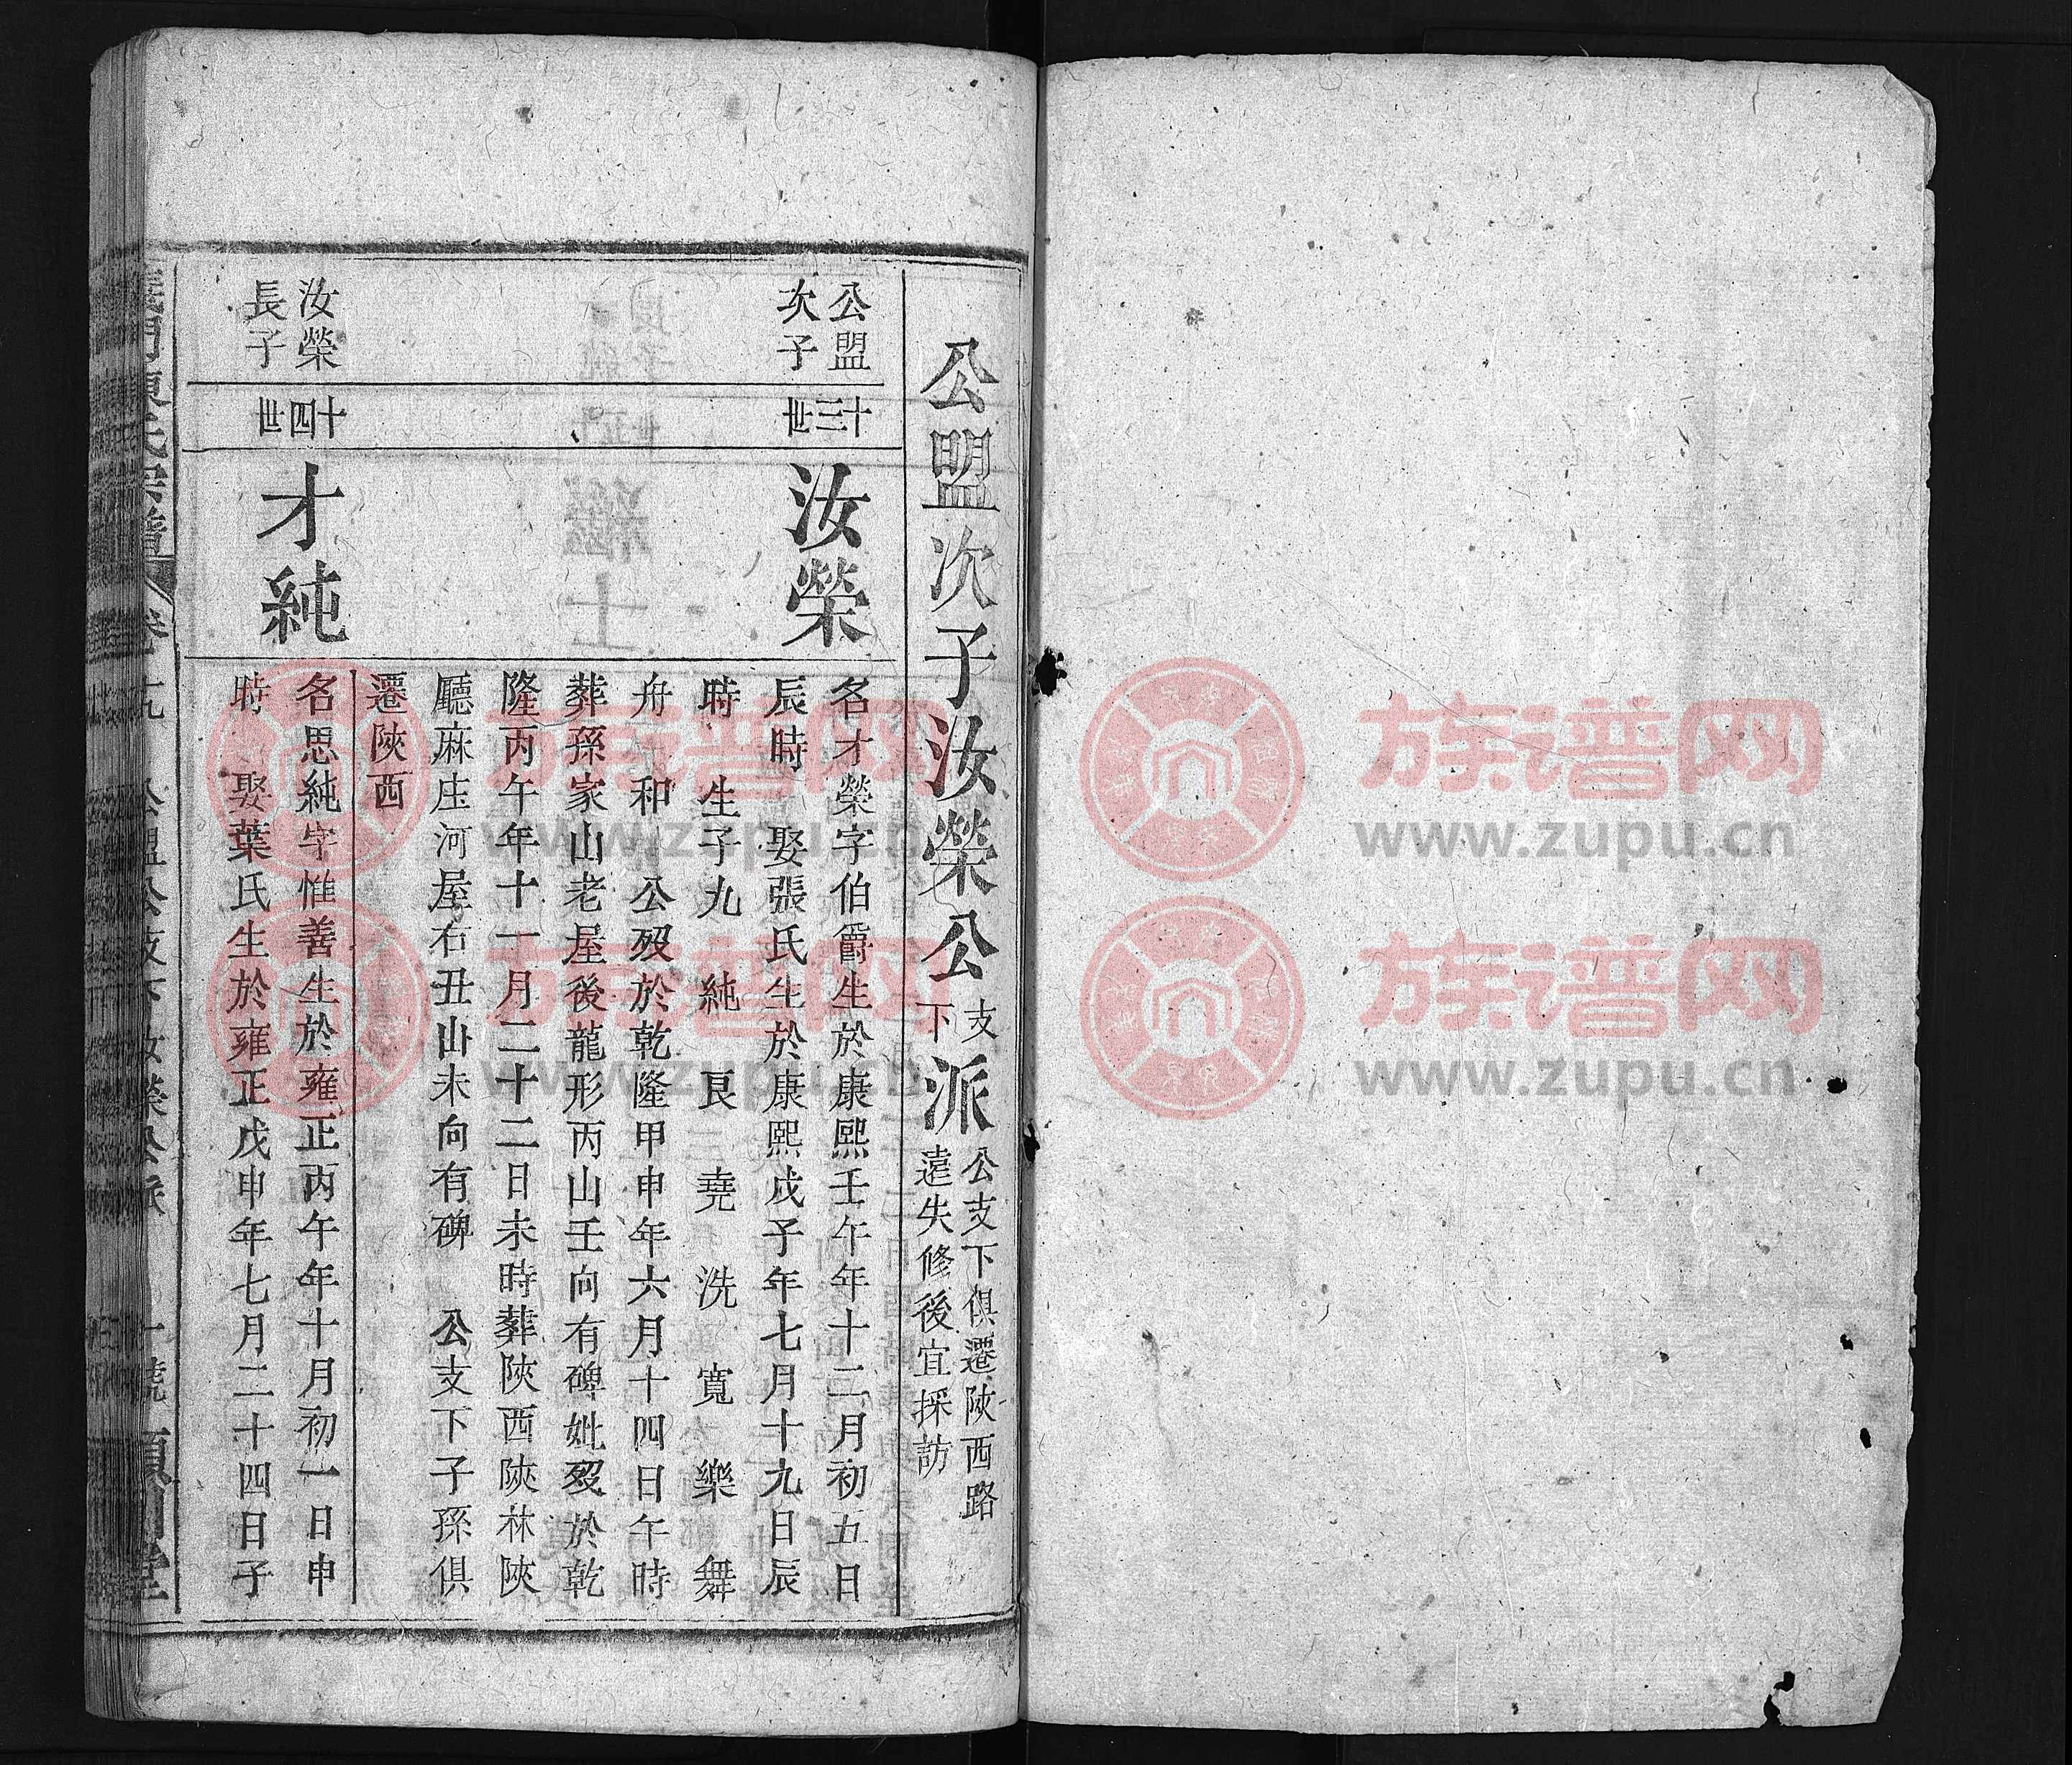 公盟次子汝榮公支下派公支下俱遷陝西路
遠失修後宜採訪
公盟
次子
十三世
汝榮
名才榮字伯爵生於康熙壬午年十二月初五日
辰時 娶張氏生於康熙戊子年七月十九日辰
時 生子九 純 良 堯 洗 寬 樂 舞
舟 和 公歿於乾隆甲申年六月十四日午時
葬孫家山老屋後龍形丙山壬向有碑妣歿於乾
隆丙午年十一月二十二日未時葬陝西陝林陝
廳麻庄河屋右丑山未向有碑 公支下子孫俱
遷陝西
汝榮
長子
十四世
才純
名思純字惟善生於雍正丙午年十月初一日申
時 娶葉氏生於雍正戊申年七月二十四日子
公盟公支下汝榮公派
族谱网
www.zupu.cn
族谱网
www.zupu.cn
族谱网
www.zupu.cn
族谱网
www.zupu.cn